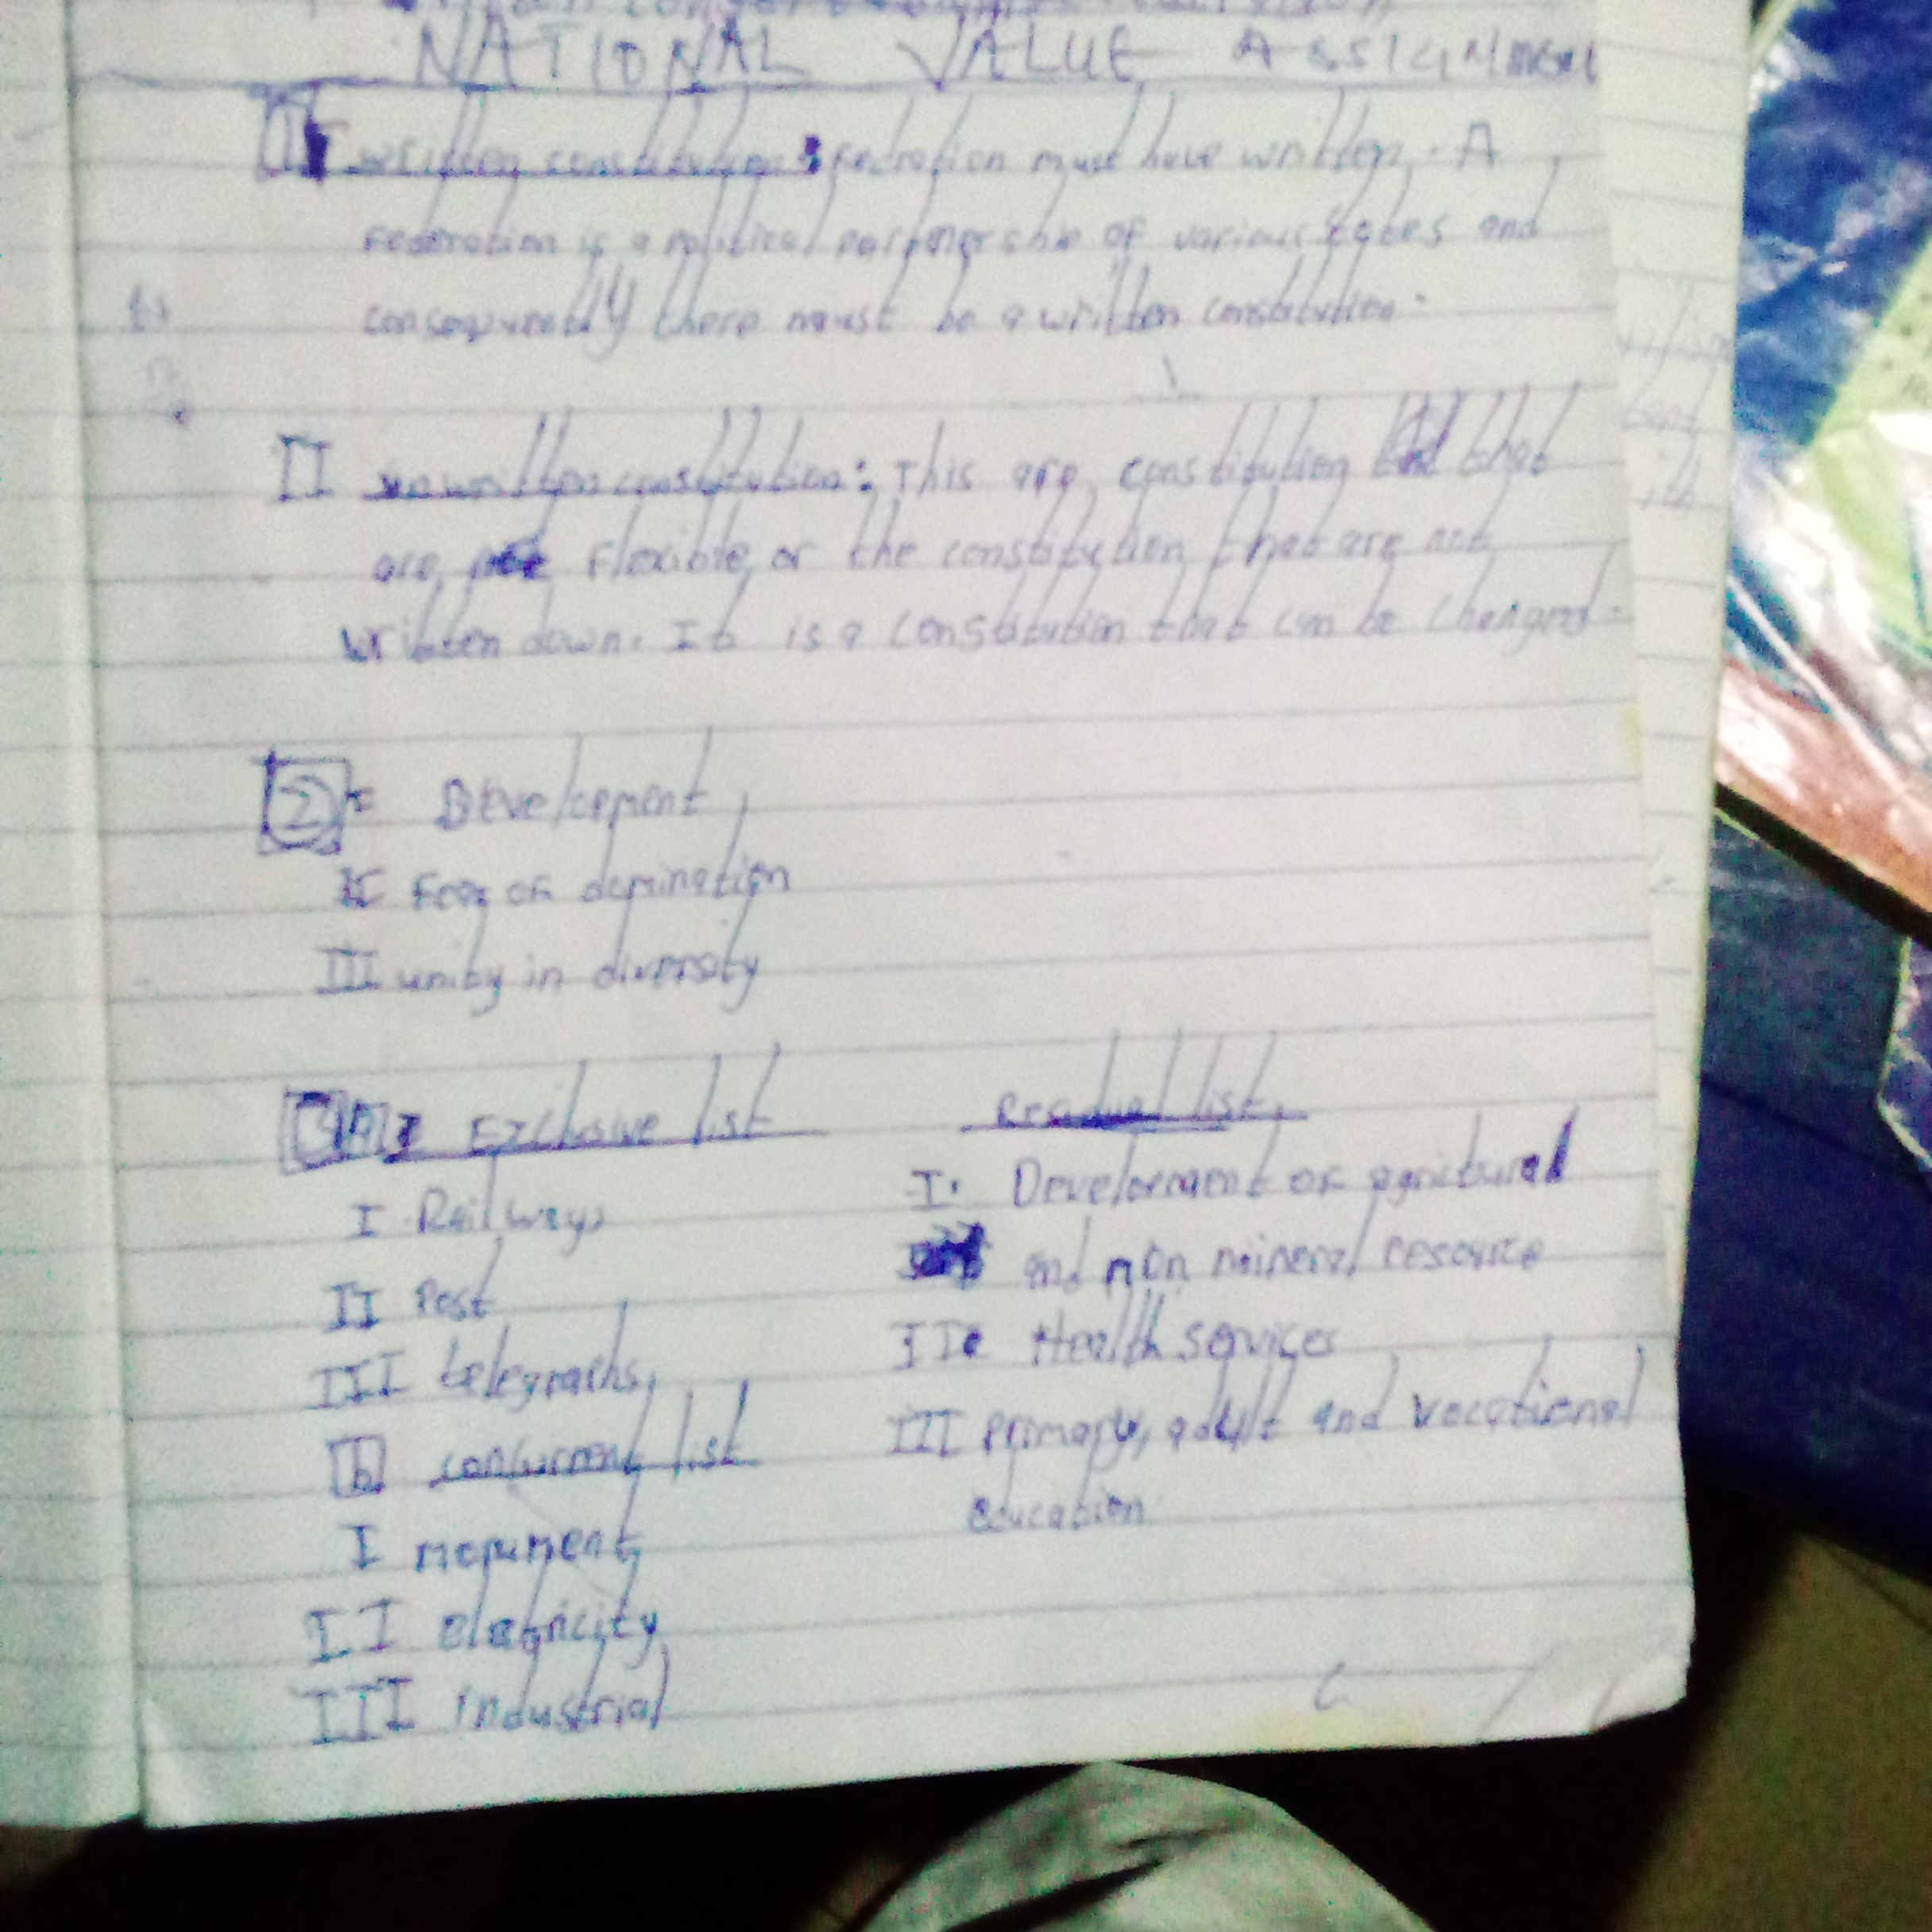 NATIONAL VALUE ASSIGNMENT
1 I written constitution: Fedration must have written. A
Federation is a political partnership of various states and
consequently there must be a written constitution.
II unwritten constitution: This are constitution that
are Flexible or the constitution that are not
written down. It is a constitution that can be changed.
2 I Development
II Fear of domination
III unity in diversity
3 A Exclusive list
I Railways
II Post
III telegraphs
b concurrent list
I monument
II Eletricity
III industrial
Residual list
I. Development of agricturel
and non mineral resource
II. Health services
III primary, adult and vocational
education